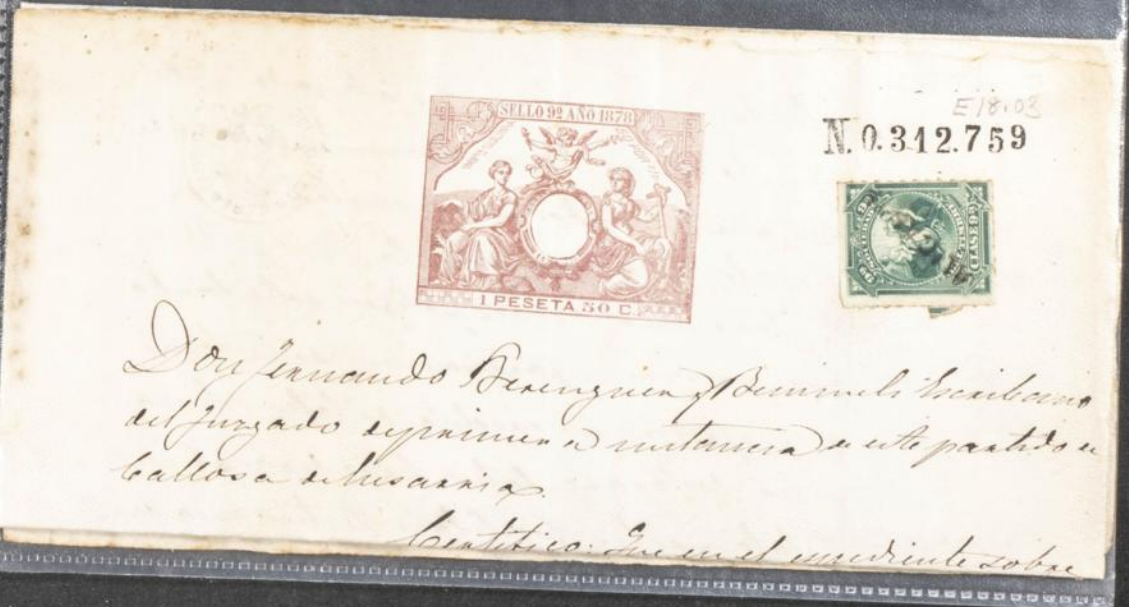 E18.03
SELLO 9º AÑO 1878
N. 0.312.759
1 PESETA 50 C.
Don Fernando Berenguer y Bennimeli Escribano
del Juzgado de primera instancia de este partido de
Callosa de Ensarriá.
Certifico: Que en el expediente sobre